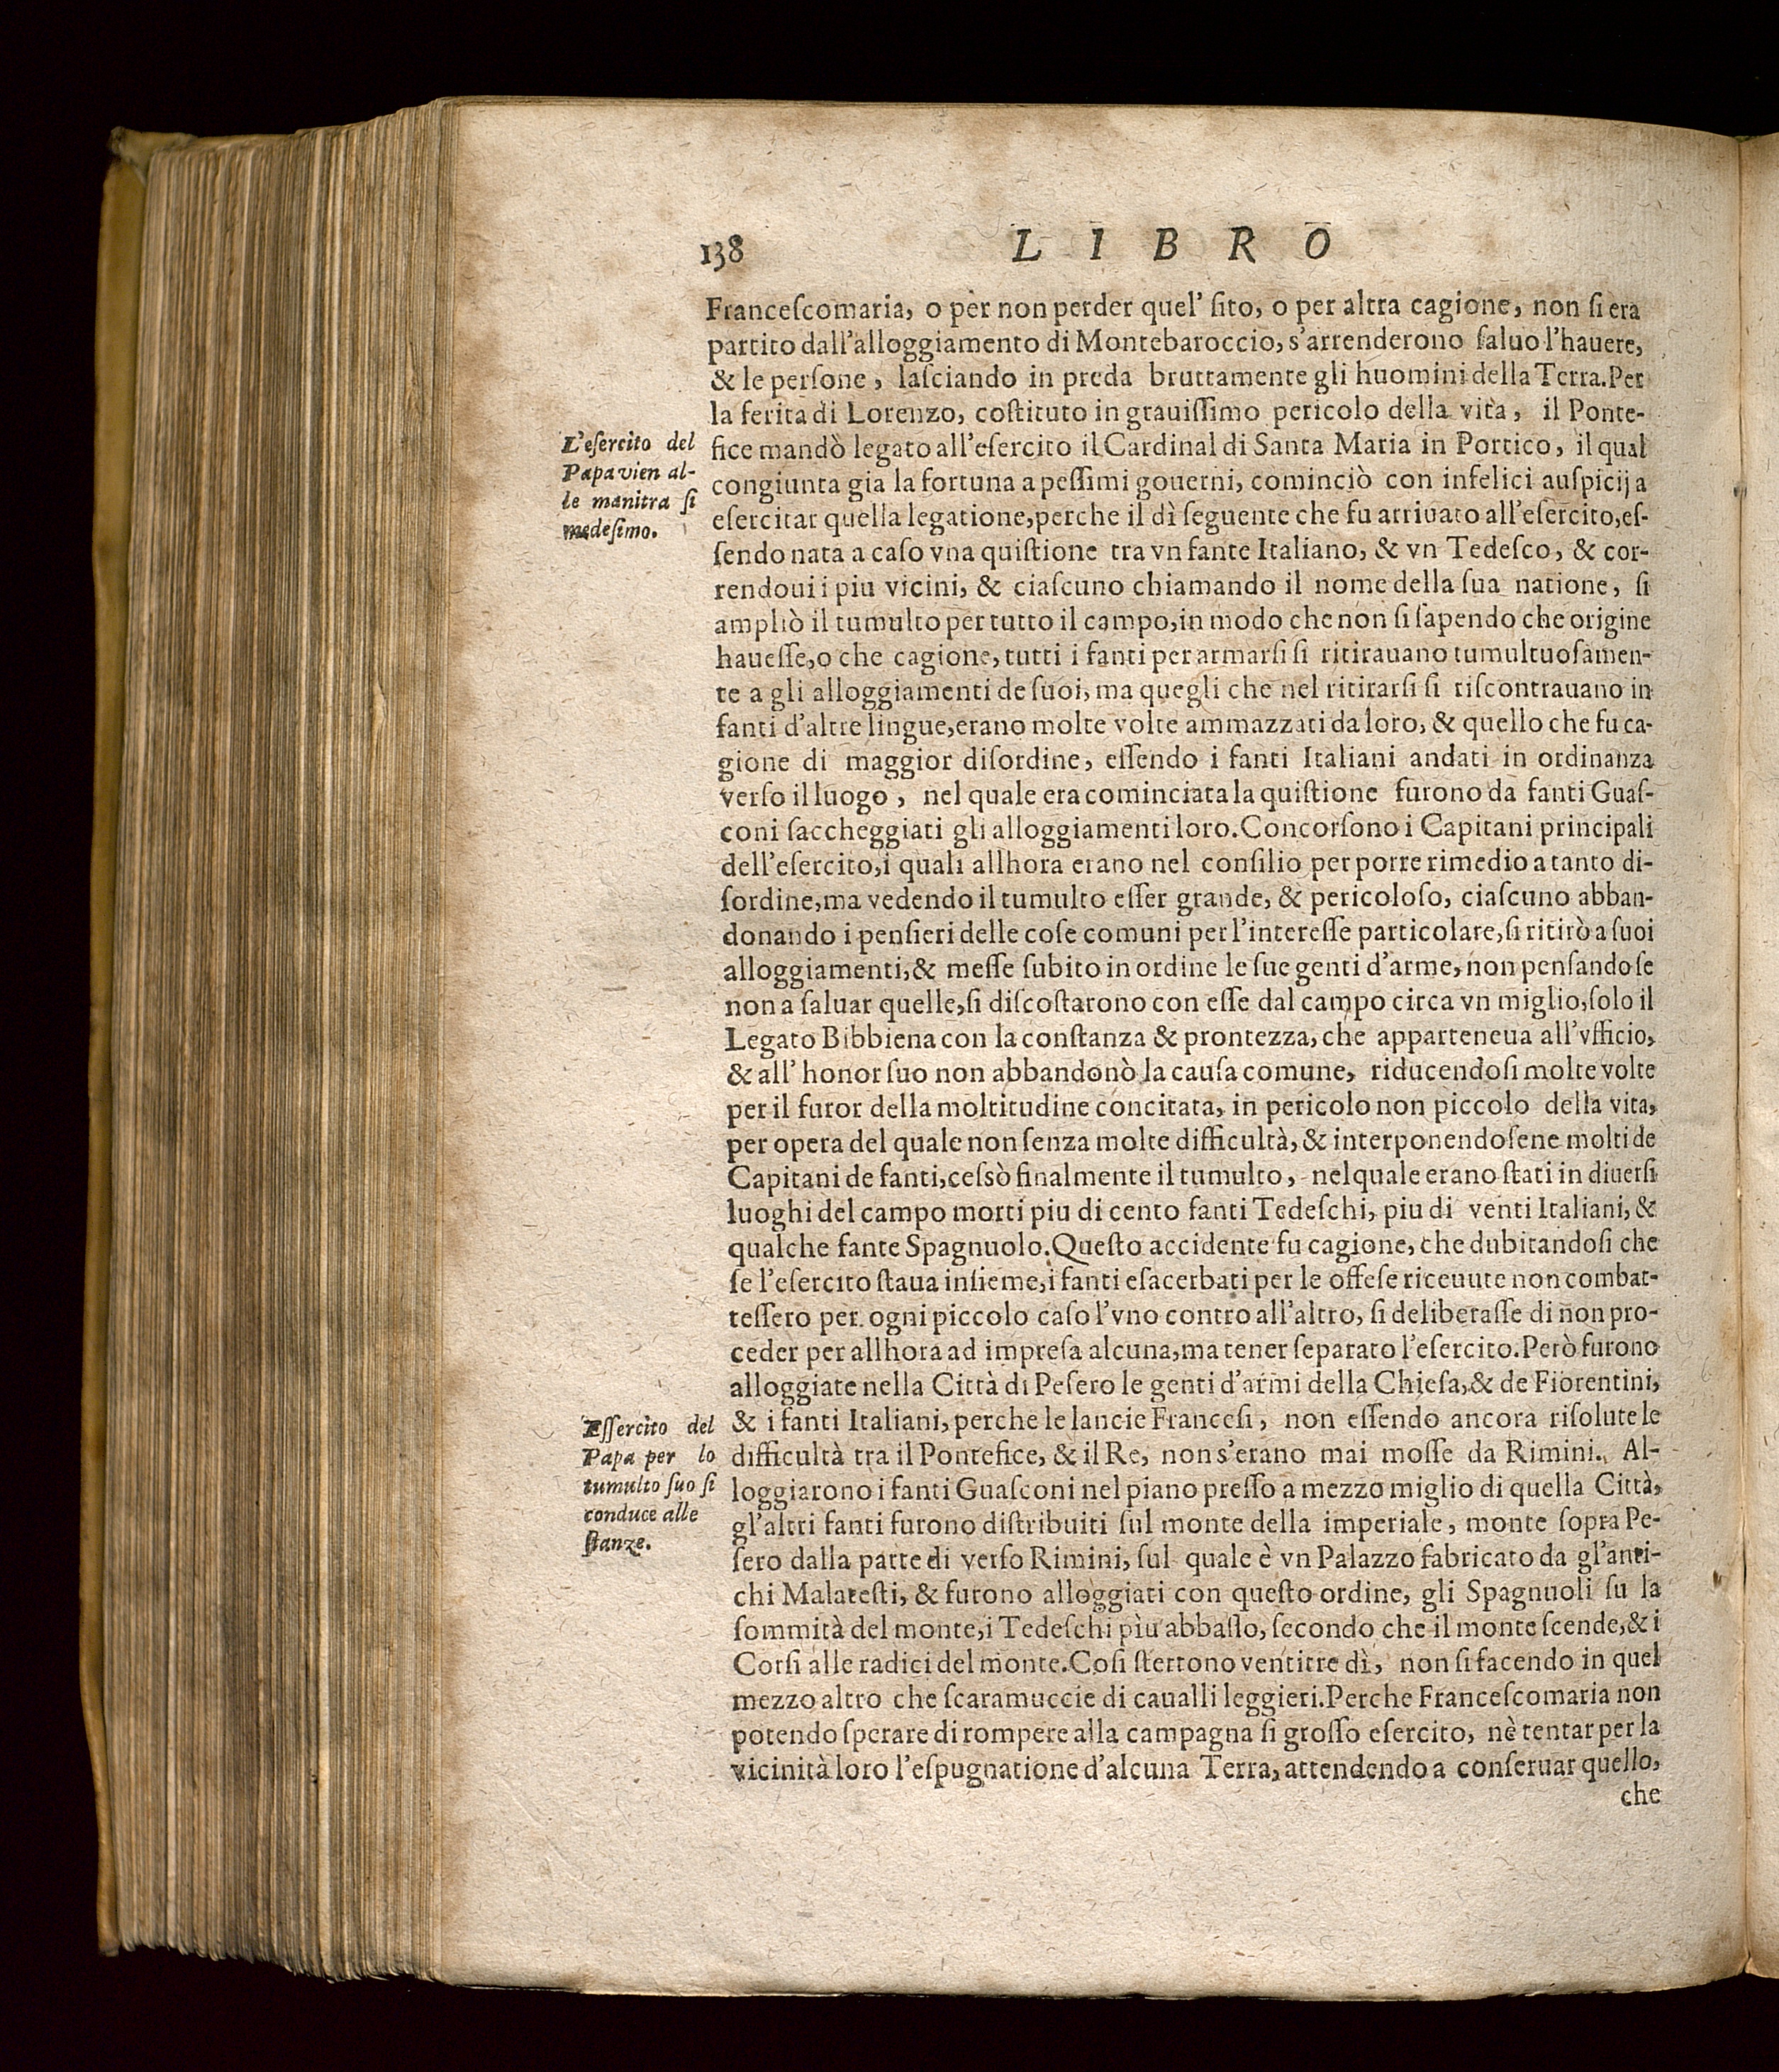 138
LIBRO
Franceſcomaria, o per non perder quel' ſito, o per altra cagione, non ſi era
partito dall'alloggiamento di Montebaroccio, s'arrenderono ſaluo l'hauere,
& le perſone, laſciando in preda bruttamente gli huomini della Terra. Per
la ferita di Lorenzo, coſtituto in grauiſſimo pericolo della vita, il Ponte-
fice mandò legato all'eſercito il Cardinal di Santa Maria in Portico, il qual
congiunta gia la fortuna a peſſimi gouerni, cominciò con infelici auſpicij a
eſercitar quella legatione, perche il dì ſeguente che fu arriuato all'eſercito, eſ-
ſendo nata a caſo vna quiſtione tra vn fante Italiano, & vn Tedeſco, & cor-
rendoui i piu vicini, & ciaſcuno chiamando il nome della ſua natione, ſi
ampliò il tumulto per tutto il campo, in modo che non ſi ſapendo che origine
haueſſe, o che cagione, tutti i fanti per armarſi ſi ritirauano tumultuoſamen-
te a gli alloggiamenti de ſuoi, ma quegli che nel ritirarſi ſi riſcontrauano in
fanti d'altre lingue, erano molte volte ammazzati da loro, & quello che fu ca-
gione di maggior diſordine, eſſendo i fanti Italiani andati in ordinanza
verſo il luogo, nel quale era cominciata la quiſtione furono da fanti Guaſ-
coni ſaccheggiati gli alloggiamenti loro. Concorſono i Capitani principali
dell'eſercito, i quali allhora erano nel conſilio per porre rimedio a tanto di-
ſordine, ma vedendo il tumulto eſſer grande, & pericoloſo, ciaſcuno abban-
donando i penſieri delle coſe comuni per l'intereſſe particolare, ſi ritirò a ſuoi
alloggiamenti, & meſſe ſubito in ordine le ſue genti d'arme, non penſando ſe
non a ſaluar quelle, ſi diſcoſtarono con eſſe dal campo circa vn miglio, ſolo il
Legato Bibbiena con la conſtanza & prontezza, che apparteneua all'vfficio,
& all' honor ſuo non abbandonò la cauſa comune, riducendoſi molte volte
per il furor della moltitudine concitata, in pericolo non piccolo della vita,
per opera del quale non ſenza molte difficultà, & interponendoſene molti de
Capitani de fanti, ceſsò finalmente il tumulto, nel quale erano ſtati in diuerſi
luoghi del campo morti piu di cento fanti Tedeſchi, piu di venti Italiani, &
qualche fante Spagnuolo. Queſto accidente fu cagione, che dubitandoſi che
ſe l'eſercito ſtaua inſieme, i fanti eſacerbati per le offeſe riceuute non combat-
teſſero per ogni piccolo caſo l'vno contro all'altro, ſi deliberaſſe di non pro-
ceder per allhora ad impreſa alcuna, ma tener ſeparato l'eſercito. Però furono
alloggiate nella Città di Peſero le genti d'armi della Chieſa, & de Fiorentini,
& i fanti Italiani, perche le lancie Franceſi, non eſſendo ancora riſolute le
difficultà tra il Pontefice, & il Re, non s'erano mai moſſe da Rimini. Al-
loggiarono i fanti Guaſconi nel piano preſſo a mezzo miglio di quella Città,
gl'altri fanti furono diſtribuiti ſul monte della imperiale, monte ſopra Pe-
ſero dalla parte di verſo Rimini, ſul quale è vn Palazzo fabricato da gl'anti-
chi Malateſti, & furono alloggiati con queſto ordine, gli Spagnuoli ſu la
ſommità del monte, i Tedeſchi più abbaſſo, ſecondo che il monte ſcende, & i
Corſi alle radici del monte. Coſi ſtettono ventitre dì, non ſi facendo in quel
mezzo altro che ſcaramuccie di caualli leggieri. Perche Franceſcomaria non
potendo ſperare di rompere alla campagna ſi groſſo eſercito, nè tentar per la
vicinità loro l'eſpugnatione d'alcuna Terra, attendendo a conſeruar quello,
che
L'eſercito del
Papa vien al-
le mani tra ſi
medeſimo.
Eſſercito del
Papa per lo
tumulto ſuo ſi
conduce alle
ſtanze.